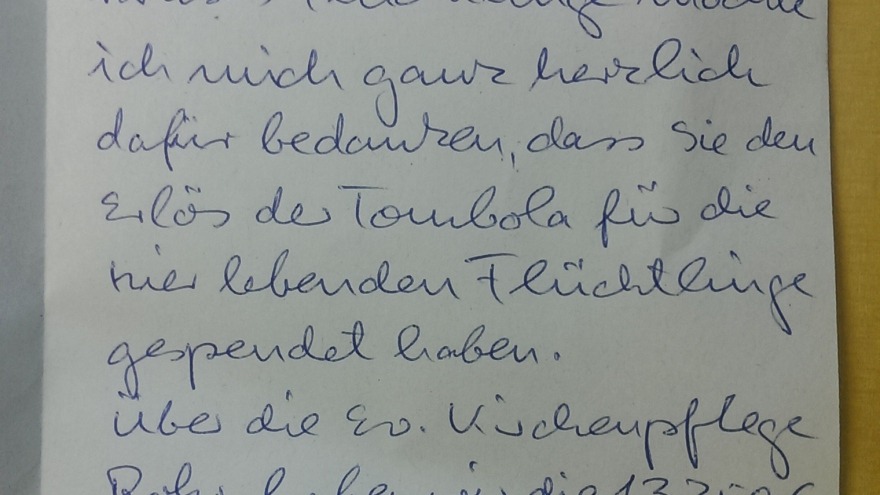 möchte
ich mich ganz herzlich
dafür bedanken, dass Sie den
Erlös der Tombola für die
hier lebenden Flüchtlinge
gespendet haben.
Über die Ev. Kirchenpflege
die